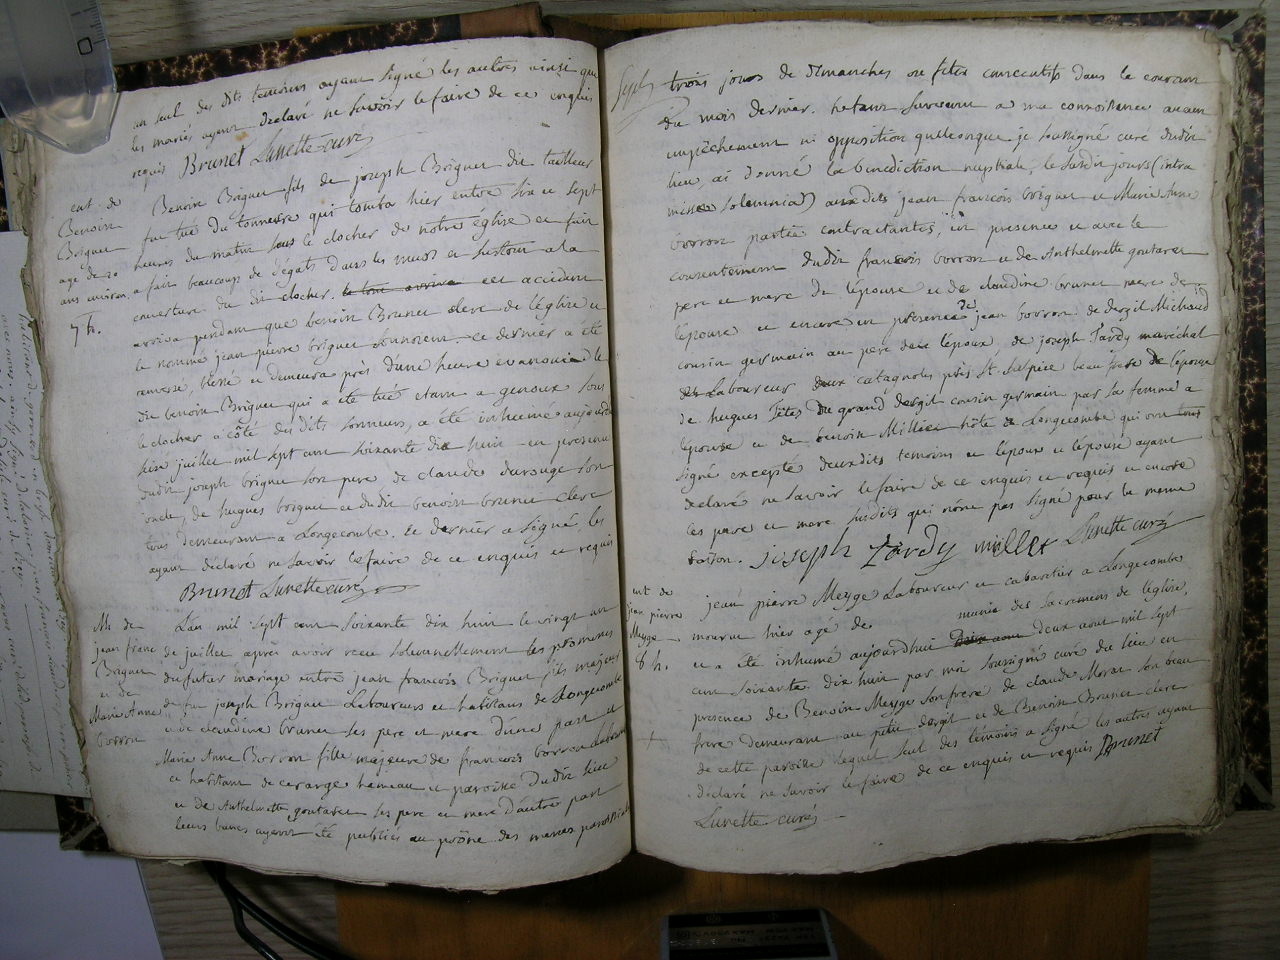 un seul des dits temoins ayant signé les autres ainsi que
les mariés ayant declaré ne savoir le faire de ce enquis
requis Brunet Lunette curé
ent. de
Benoin
Briguet
age de 20
ans environ
7 h.
Benoin Briguet fils de joseph Briguet dit tailleur
fut tué du tonnerre qui tomba hier entre six et sept
heures du matin sous le clocher de notre église et fait
a fait beaucoup de dégats dans les murs et surtout a la
couverture du dit clocher. le tout arriva cet accident
arriva pendant que benoin Brunet clerc de l'église et
le nommé jean pierre briguet sonnoient. ce dernier a été
blessé et demeura près d'une heure evanoui le
dit benoin Briguet qui a été tué etant a genoux sous
le clocher a côté des dits sonneurs, a été inhumé aujourd'hui
six juillet mil sept cent soixante dix huit en presence
dudit joseph briguet son pere de claude durouge son
oncle, de hugues briguet et dudit benoin brunet clerc
tous demeurant a Longecombe. ce dernier a signé les
ayant declaré ne savoir le faire de ce enquis et requis
Brunet Lunette curé
M. de
jean franc
Briguet
et de
Marie Anne
borron
L'an mil sept cent soixante dix huit le vingt un
de juillet après avoir receu solennellement les promesses
du futur mariage entre jean francois Briguet fils majeur
de fut joseph Briguet Laboureurs et habitans de Longecombe
et de claudine brunet ses pere et mere d'une part et
Marie Anne Borron fille majeure de francois borron laboureur
et habitant de cerarge hameau et paroisse dudit lieu
et de Anthelmette goutaret ses pere et mere d'autre part
leurs bancs ayent été publiés au prône des messes paroissiales
Sept
trois jours de dimanches ou fêtes consecutifs dans le courant
du mois dernier. n'etant survenu a ma connoissance aucun
empêchement ni opposition quelconque je soussigné curé dudit
lieu, ai donné la benediction nuptiale, le susdit jours (intra
missar solemnia) auxdits jean francois briguet et Marie Anne
borron partie contractantes, en presence et avec le
consentement dudit francois borron et de Anthelmette goutaret
pere et mere de l'epouse et de claudine brunet mere de
l'epoux et encore en présence de jean borron de dergit Michaud
cousin germain au pere de l'epoux, de joseph Tardy maréchal
Laboureur deux catagnoles près St. sulpice beau frere de l'epouse
de hugues Tétes du grand dergit cousin germain par sa femme a
l'epouse et de benoin Millier hôte de Longecombe qui ont tous
signé excepté deux dits temoins et l'epoux et l'epouse ayant
declaré ne savoir le faire de ce enquis et requis et encore
les pere et mere susdits qui n'ône pas signé pour la meme
raison. joseph Tardy millet Lunette curé
ent de
jean pierre
Meyge
8 h.
jean pierre Meyge Laboureur et cabaretier a Longecombe
mourut hier agé de munie des sacremens de l'église,
et a été inhumé aujourdhui deux aout mil sept
cent soixante dix huit par moi soussigné curé du lieu en
presence de Benoin Meyge son frere de claude Morat son beau
frere demeurant au petit dergit et de Benoin Brunet clerc
de cette paroisse lequel seul des témoins a signé les autres ayant
déclaré ne savoir le faire de ce enquis et requis Brunet
Lunette curé